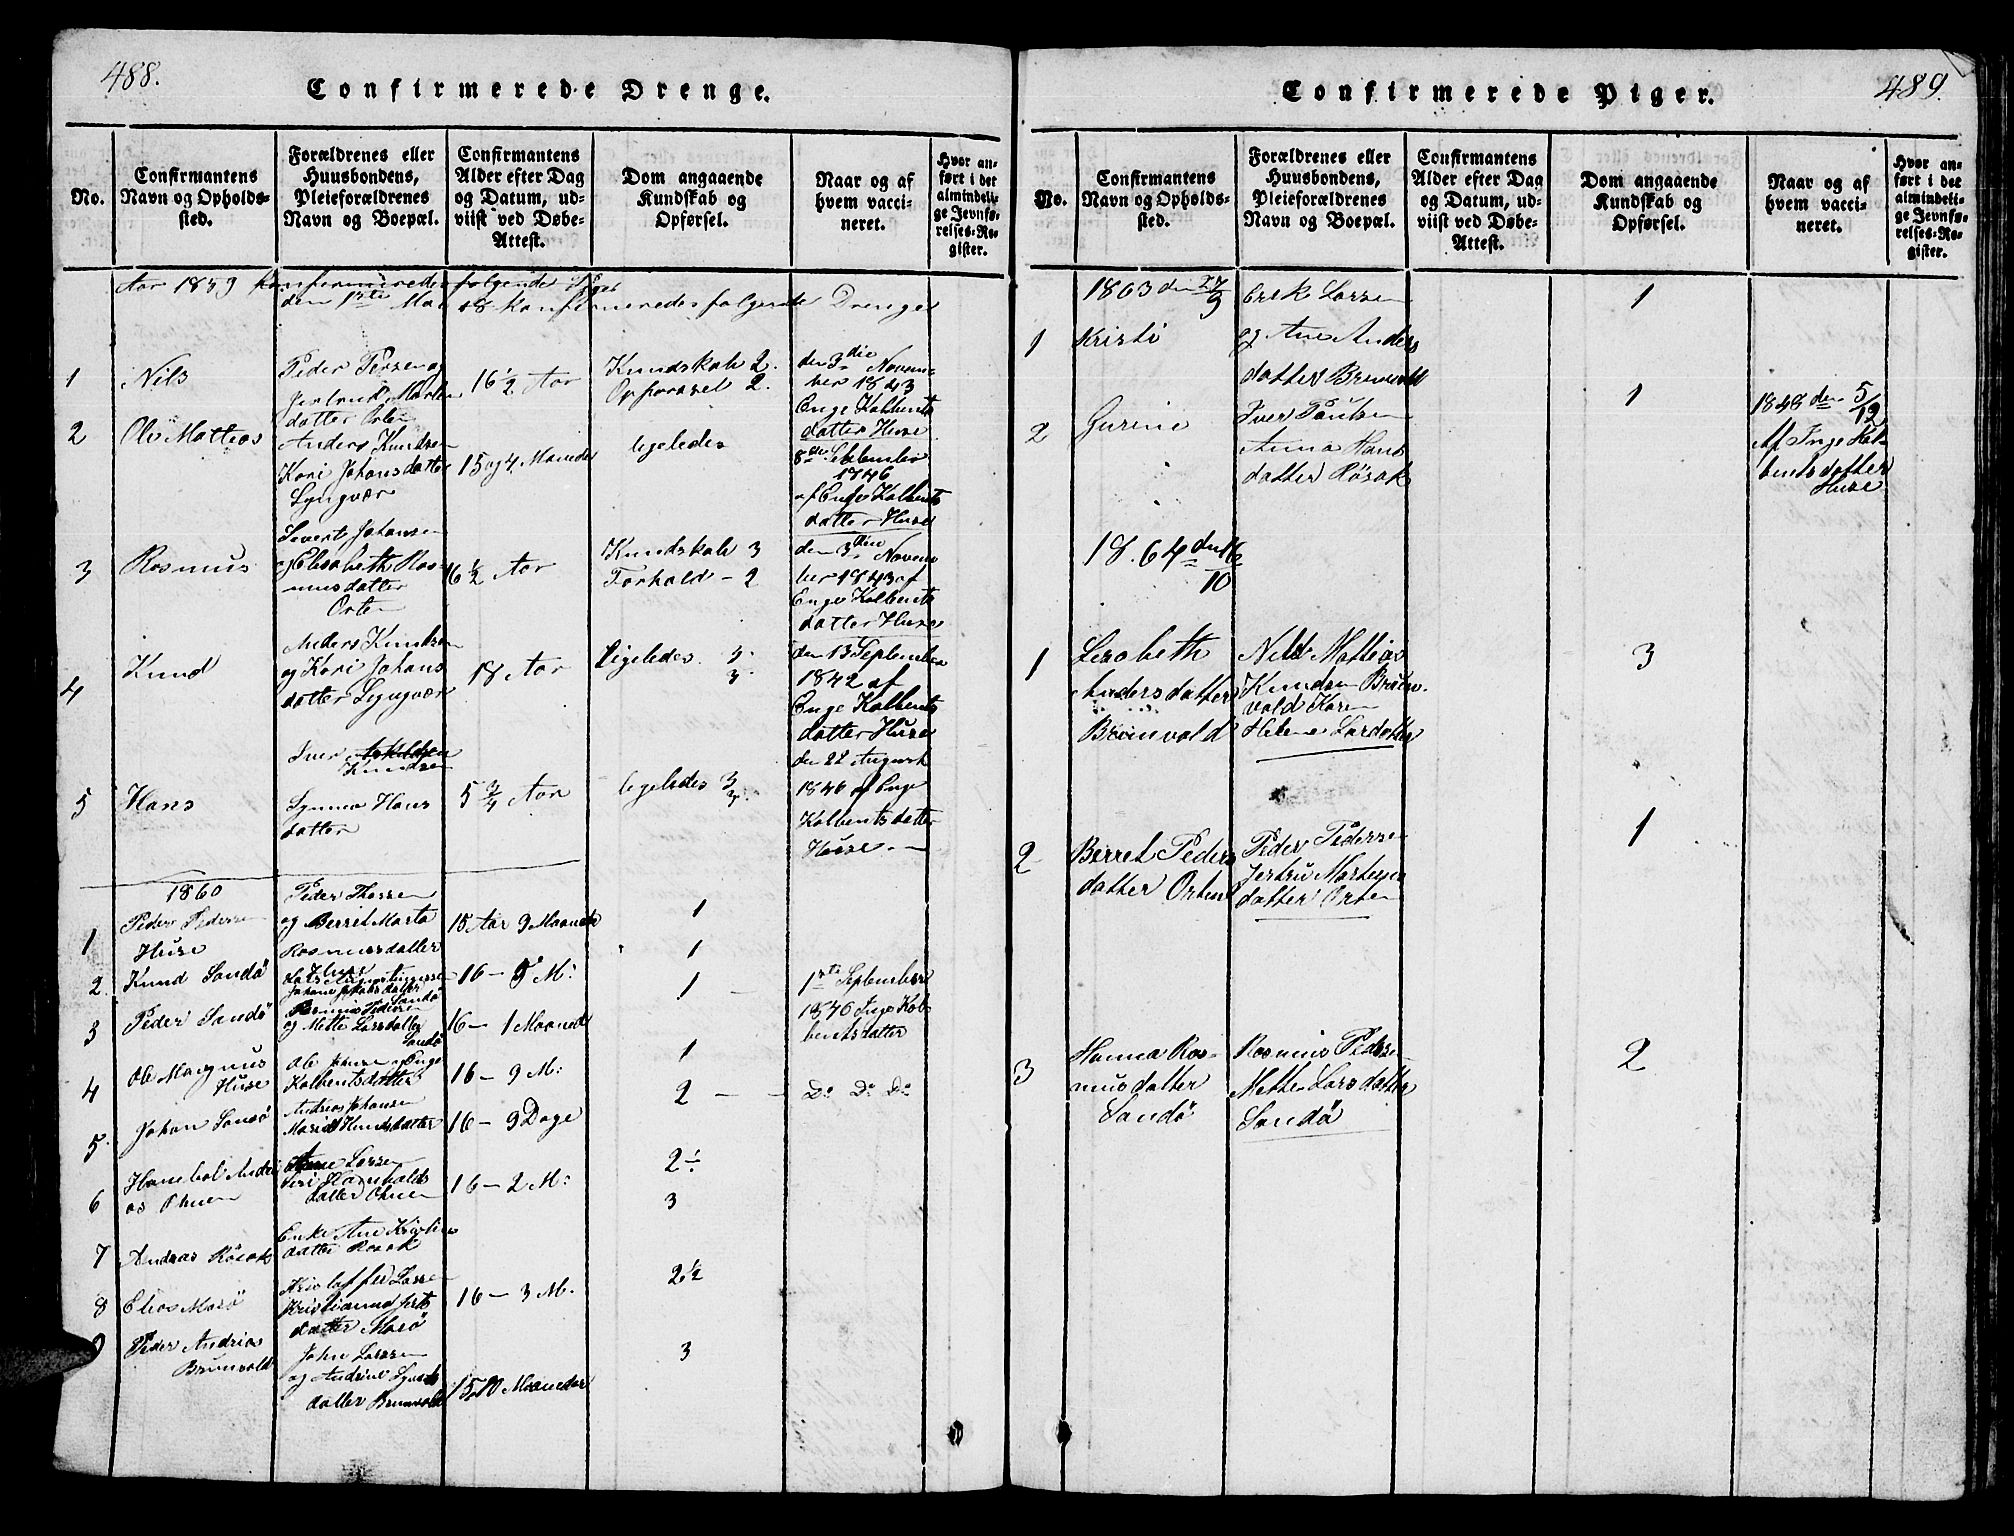 488.
Confirmerede Drenge.
No.
Confirmantens
Navn og Opholds-
sted.
Forældrenes eller
Huusbondens,
Pleieforældrenes
Navn og Boepæl.
Confirmantens
Alder efter Dag
og Datum, ud-
viist ved Døbe-
Attest.
Dom angaaende
Kundskab og
Opførsel.
Naar og af
hvem vacci-
neret.
Hvor an-
ført i det
almindeli-
ge Jevnfø-
relses-Re-
gister.
Aar 1859 konfirmeredes følgende
den 1ste Mai 18 konfirmeredes følgende Drenge
1
Nils
Peder Persen og
Jertrud Marten
datter Orten
16 1/2 Aar
Kundskab 2.
Opførsel 2.
den 3die Novem
ber 1843
Enge Kolbents
datter Huse
2
Ole Matteas
Anders Knudsen
Kari Johansdatter
Lyngvær
15 og 4 Maaneder
ligeledes
8de September
1846
af Enge Kolbents
datter Huse
3
Rasmus
Severt Johansen
og Elisabeth Ras
musdatter
Orten
16 1/2 Aar
Kundskab 3
Forhold - 2
den 3die Novem
ber 1843 af
Enge Kolbents
datter Huse
4
Knud
Anders Knudsen
og Kari Johans
datter Lyngvær
18 Aar
Ligeledes 3.
3.
den 13 September
1842 af
Enge Kolbents
datter Huse
5
Hans
Iver
Knudsen
Hans
datter
5 3/4 Aar
ligeledes 3
3.
den 22 August
1846 af Enge
Kolbentsdatter
Huse
1860
1
Peder Pedersen
Huse
Peder Thorsen
og Berret Marta
Rasmusdatter
Huse
15 Aar 9 Maaneder
1
2.
Knud Sandö
Johansdatter
Sandö
16 - 5 M:
1
3
Peder Sandö
Rasmus Pedersen
og Mette Larsdatter
Sandö
16 - 1 Maaned
1
1ste September
1846 Inge Kol
bentsdatter
4
Ole Magnus
Huse
Ole Johnsen og Enge
Kolbentsdatter
16 - 9 M:
1
5.
Johan Sandö
Andreas Johansen
Marit Knudsdatter
16 - 9 Dage
2
Do Do Do
6
Hanibal Andre
as Ohnen
Larsen
Siri Hanibals
datter Ohnen
16 - 2 M:
2 1/2
7
Andreas Rösok
Ane Kristian
datter Rösok
3
8
Elias Marö
Kristoffer Larsen
datter Marö
16 - 3 M.
2 1/2
9
Peder Andrias
Brunvold
John Larsen
og Andrine
datter Brunvold
15 10 Maaneder
3
489.
Confirmerede Piger.
No.
Confirmantens
Navn og Opholds-
sted.
Forældrenes eller
Huusbondens,
Pleieforældrenes
Navn og Boepæl.
Confirmantens
Alder efter Dag
og Datum, ud-
viist ved Døbe-
Attest.
Dom angaaende
Kundskab og
Opførsel.
Naar og af
hvem vacci-
neret.
Hvor an-
ført i det
almindeli-
ge Jevnfø-
relses-Re-
gister.
1863 den 27/9
1
Kristi
Erik Larsen
og Ane Anders
datter Brunvold
1
2
Gurine
Iver Paulsen
Anna Hans
datter Rösok
1
1848 den 5/12
Af Inge Kol
bentsdatter
Huse
1864 den 16/10
1
Lisabeth
Andersdatter
Brunvold
Nils Mattias
Knudsen Brun
vold Karen
Helene Larsdatter
3
2
Berret Peders
datter Orten
Peder Pedersen
Jertru Martens
datter Orten
1
3
Hanna Ras
musdatter
Sandö
Rasmus Peders
Mette Larsdatter
Sandö
2